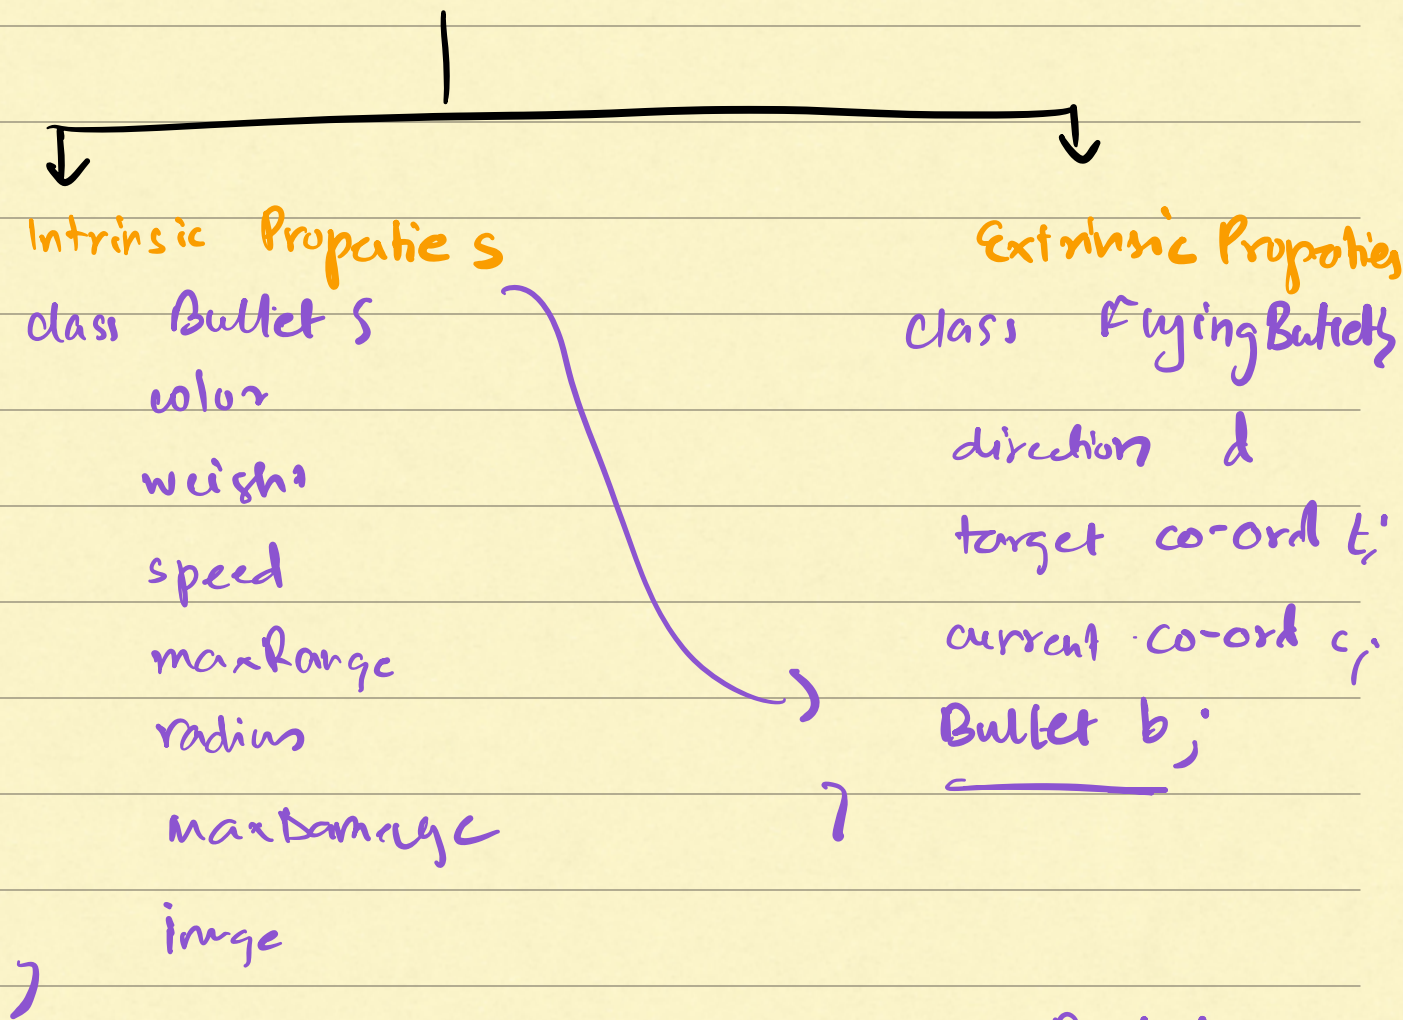 Intrinsic Propaties
class Bullet {
color
weight
speed
maxRange
radius
maxDamage
image
}
Extrinsic Propaties
class FlyingBullet {
direction d
target co-ord t;
current co-ord c;
Bullet b;
}